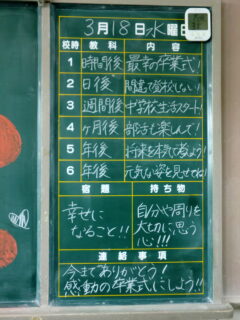 3月18日水曜日
校時 教科 内容
1 時間後 最幸の卒業式!
2 日後 間違て登校しない!
3 週間後 中学校生活スタート!
4 ヶ月後 部活も楽しんで!
5 年後 将来を本気で考えよう!
6 年後 元気な姿を見せてね!
宿題 持ち物
幸せに
なること!!
自分や周りを
大切に思う
心!!!
連絡事項
今までありがとう!
感動の卒業式にしよう!!